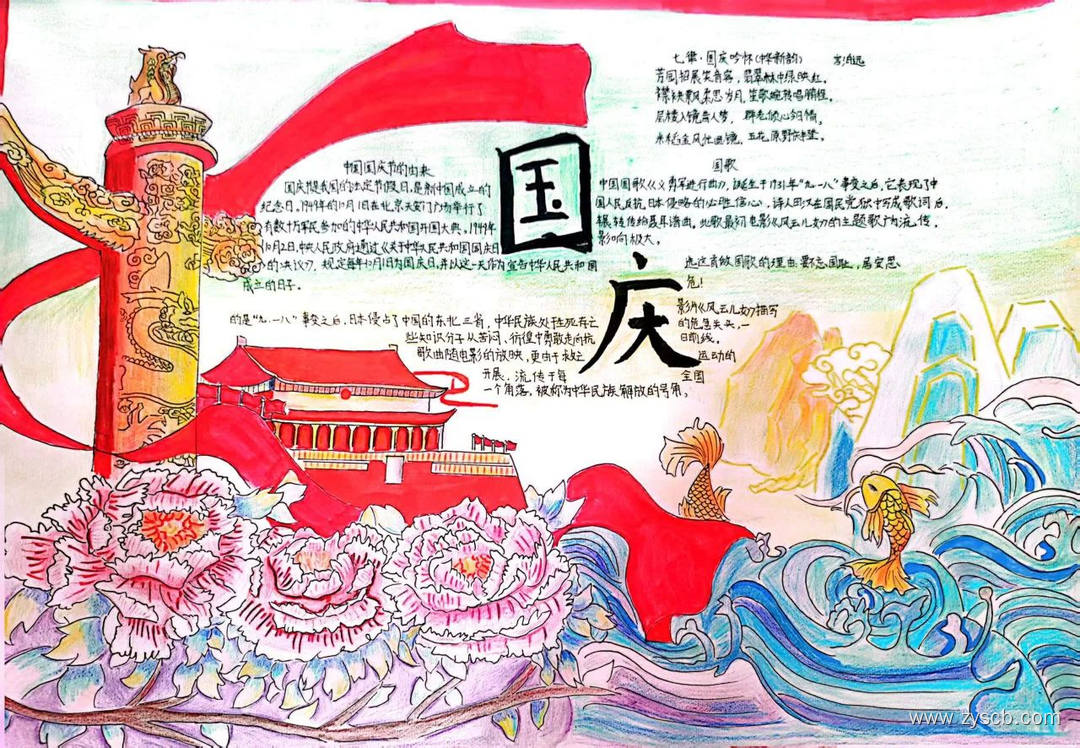 国
庆
七律·国庆吟怀(中华新韵)
中国国庆节的由来
国庆节是我国的法定节假日,是新中国成立的
纪念日。1949年的10月1日在北京天安门广场举行了
有数十万军民参加的中华人民共和国开国大典。1949年
10月2日,中央人民政府通过《关于中华人民共和国国庆日
的决议》,规定每年10月1日为国庆日,并以这一天作为宣告中华人民共和国
成立的日子。
国歌
中国国歌《义勇军进行曲》,诞生于1931年“九·一八”事变之后,它表现了中
国人民反抗日本侵略的必胜信心,诗人田汉在国民党狱中写成歌词后,
辗转传给聂耳谱曲,此歌最初电影《风云儿女》的主题歌广为流传,
影响极大。
选这首做国歌的理由:要不忘国耻,居安思
危!
影片《风云儿女》描写
的是“九·一八”事变之后,日本侵占了中国的东北三省,中华民族处于生死存亡
的危急关头,一
些知识分子从苦闷、彷徨中勇敢走向抗
日前线。
歌曲随电影的放映,更由于救亡
运动的
开展,流传于每
全国
一个角落,被称为中华民族解放的号角。
www.zyscb.com